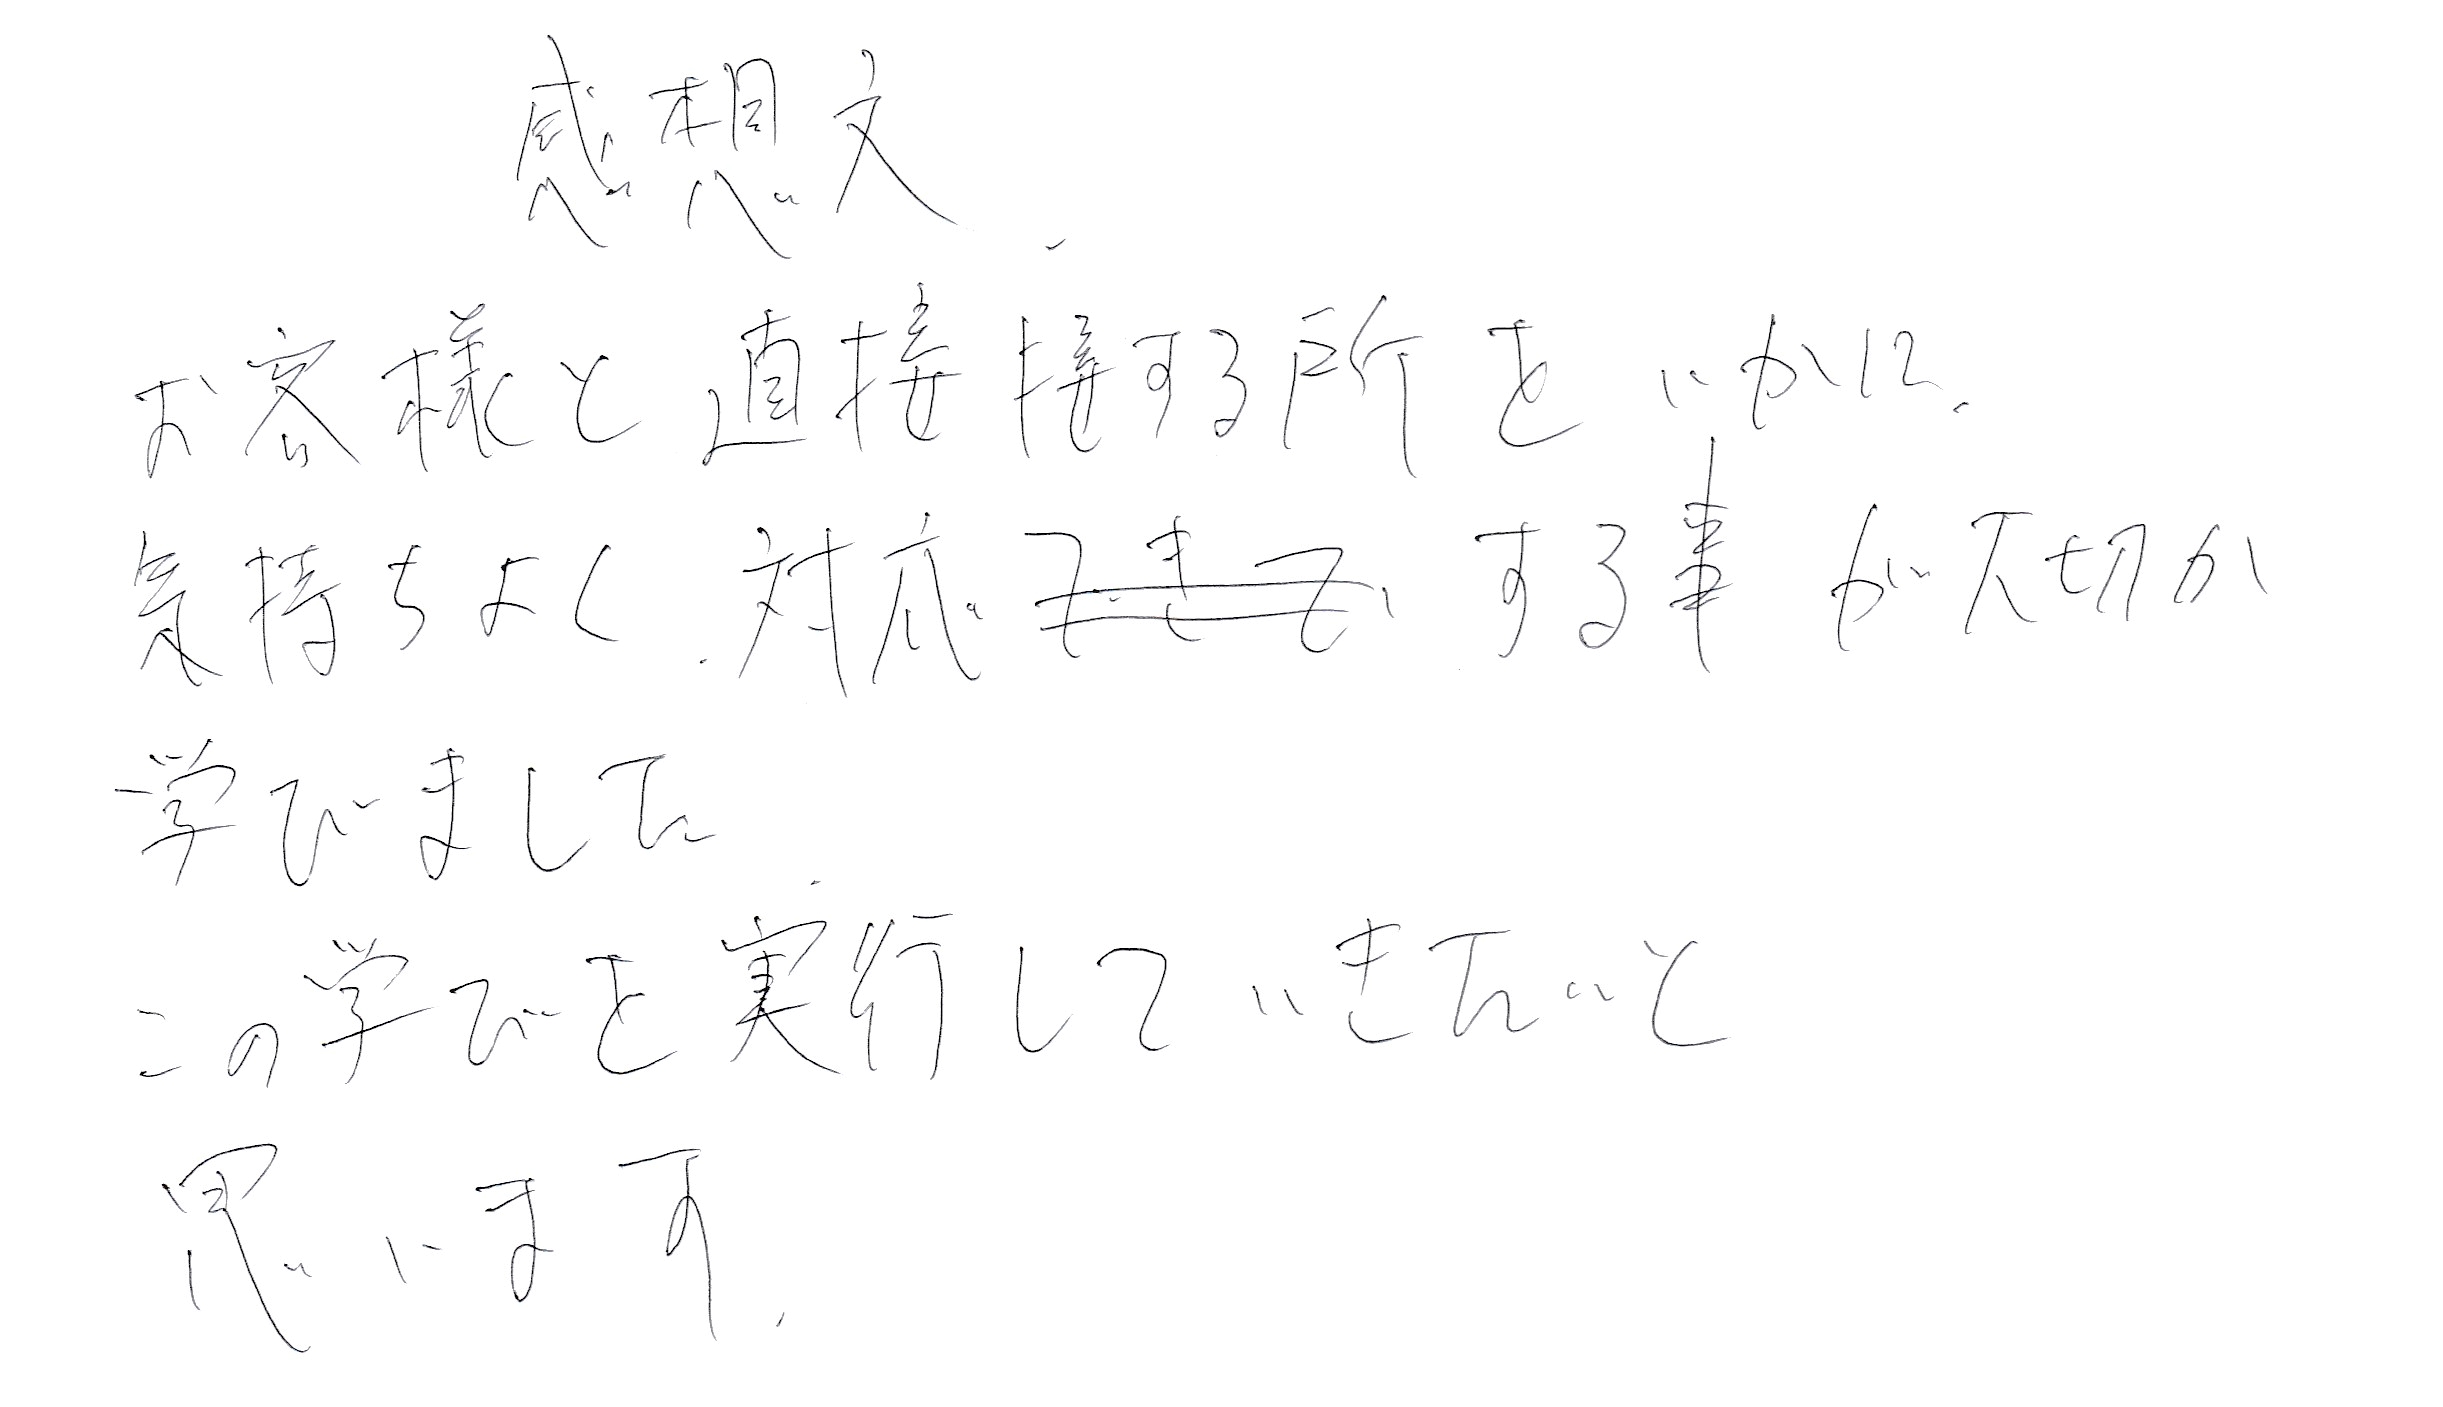 感想文
お客様と直接接する所をいかに、
気持ちよく、対応できて、する事が大切か
学びました
この学びを実行していきたいと
思います。